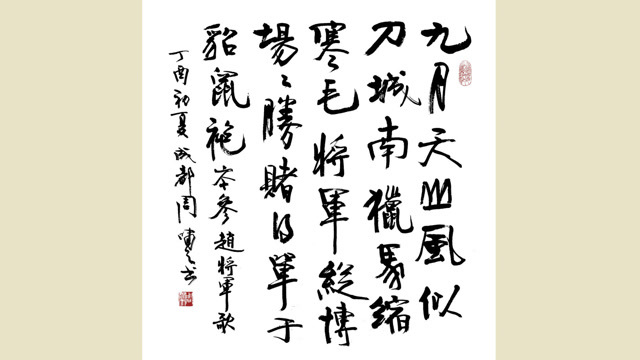 九月天山風似
刀城南獵馬縮
寒毛將軍縱博
場〻勝賭得單于
貂鼠袍岑參趙將軍歌
丁酉初夏成都周嘯天书